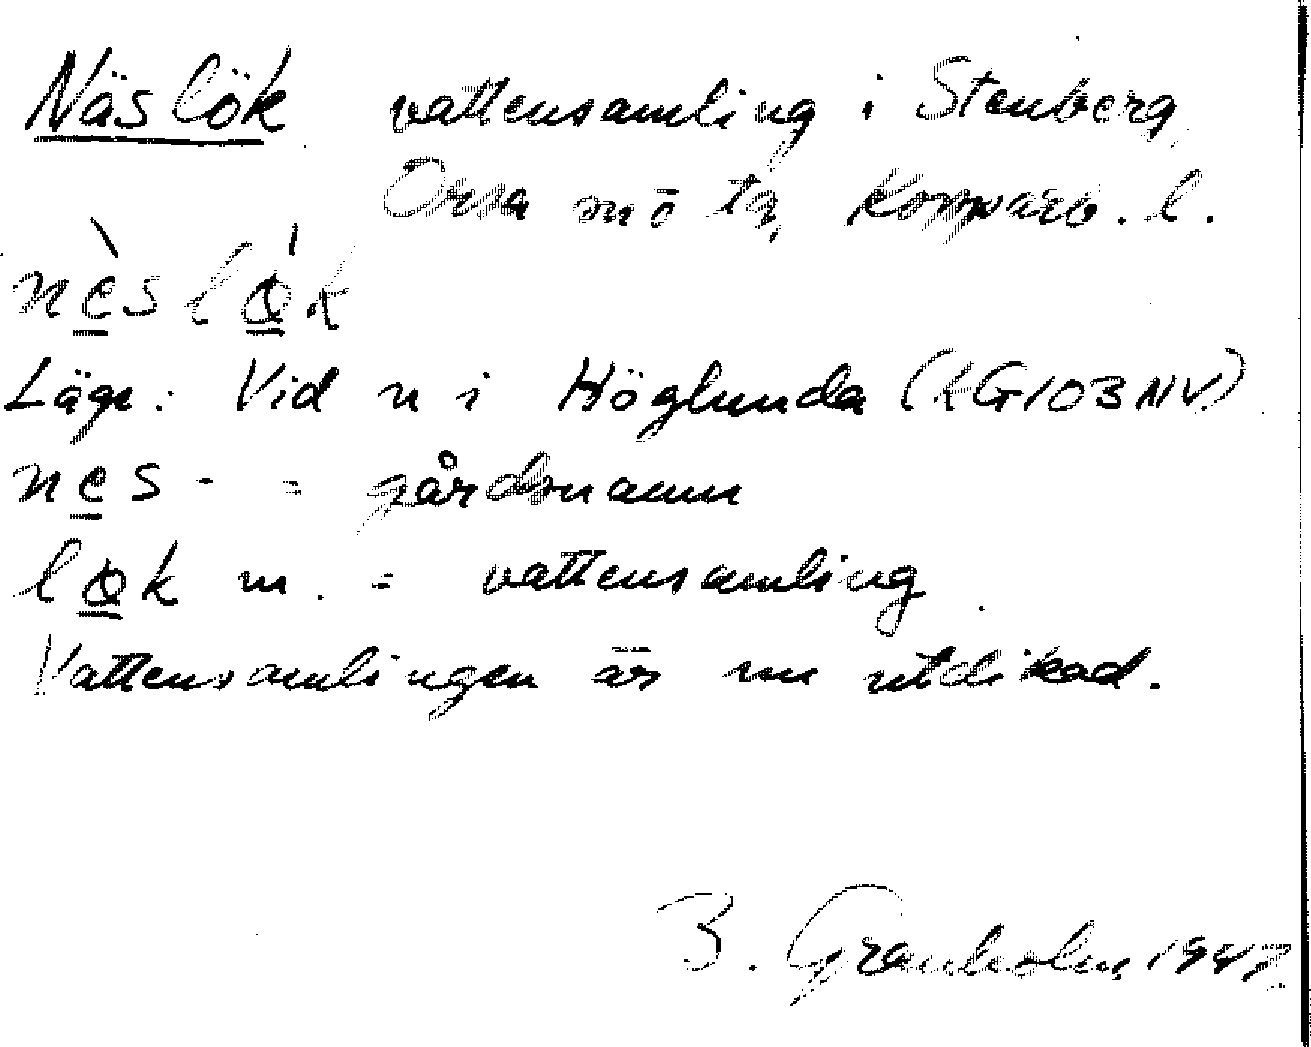 Näslök vattensamling i Stenberg,
Orsa snö tg, Kopparb. l.
nèslǫ́k
Läge: Vid n i Höglunda (KG103NV.)
nes- = gårdsnamn
lǫk m. = vattensamling.
Vattensamlingen är nu utdikad.
B. Granholm, 1947.